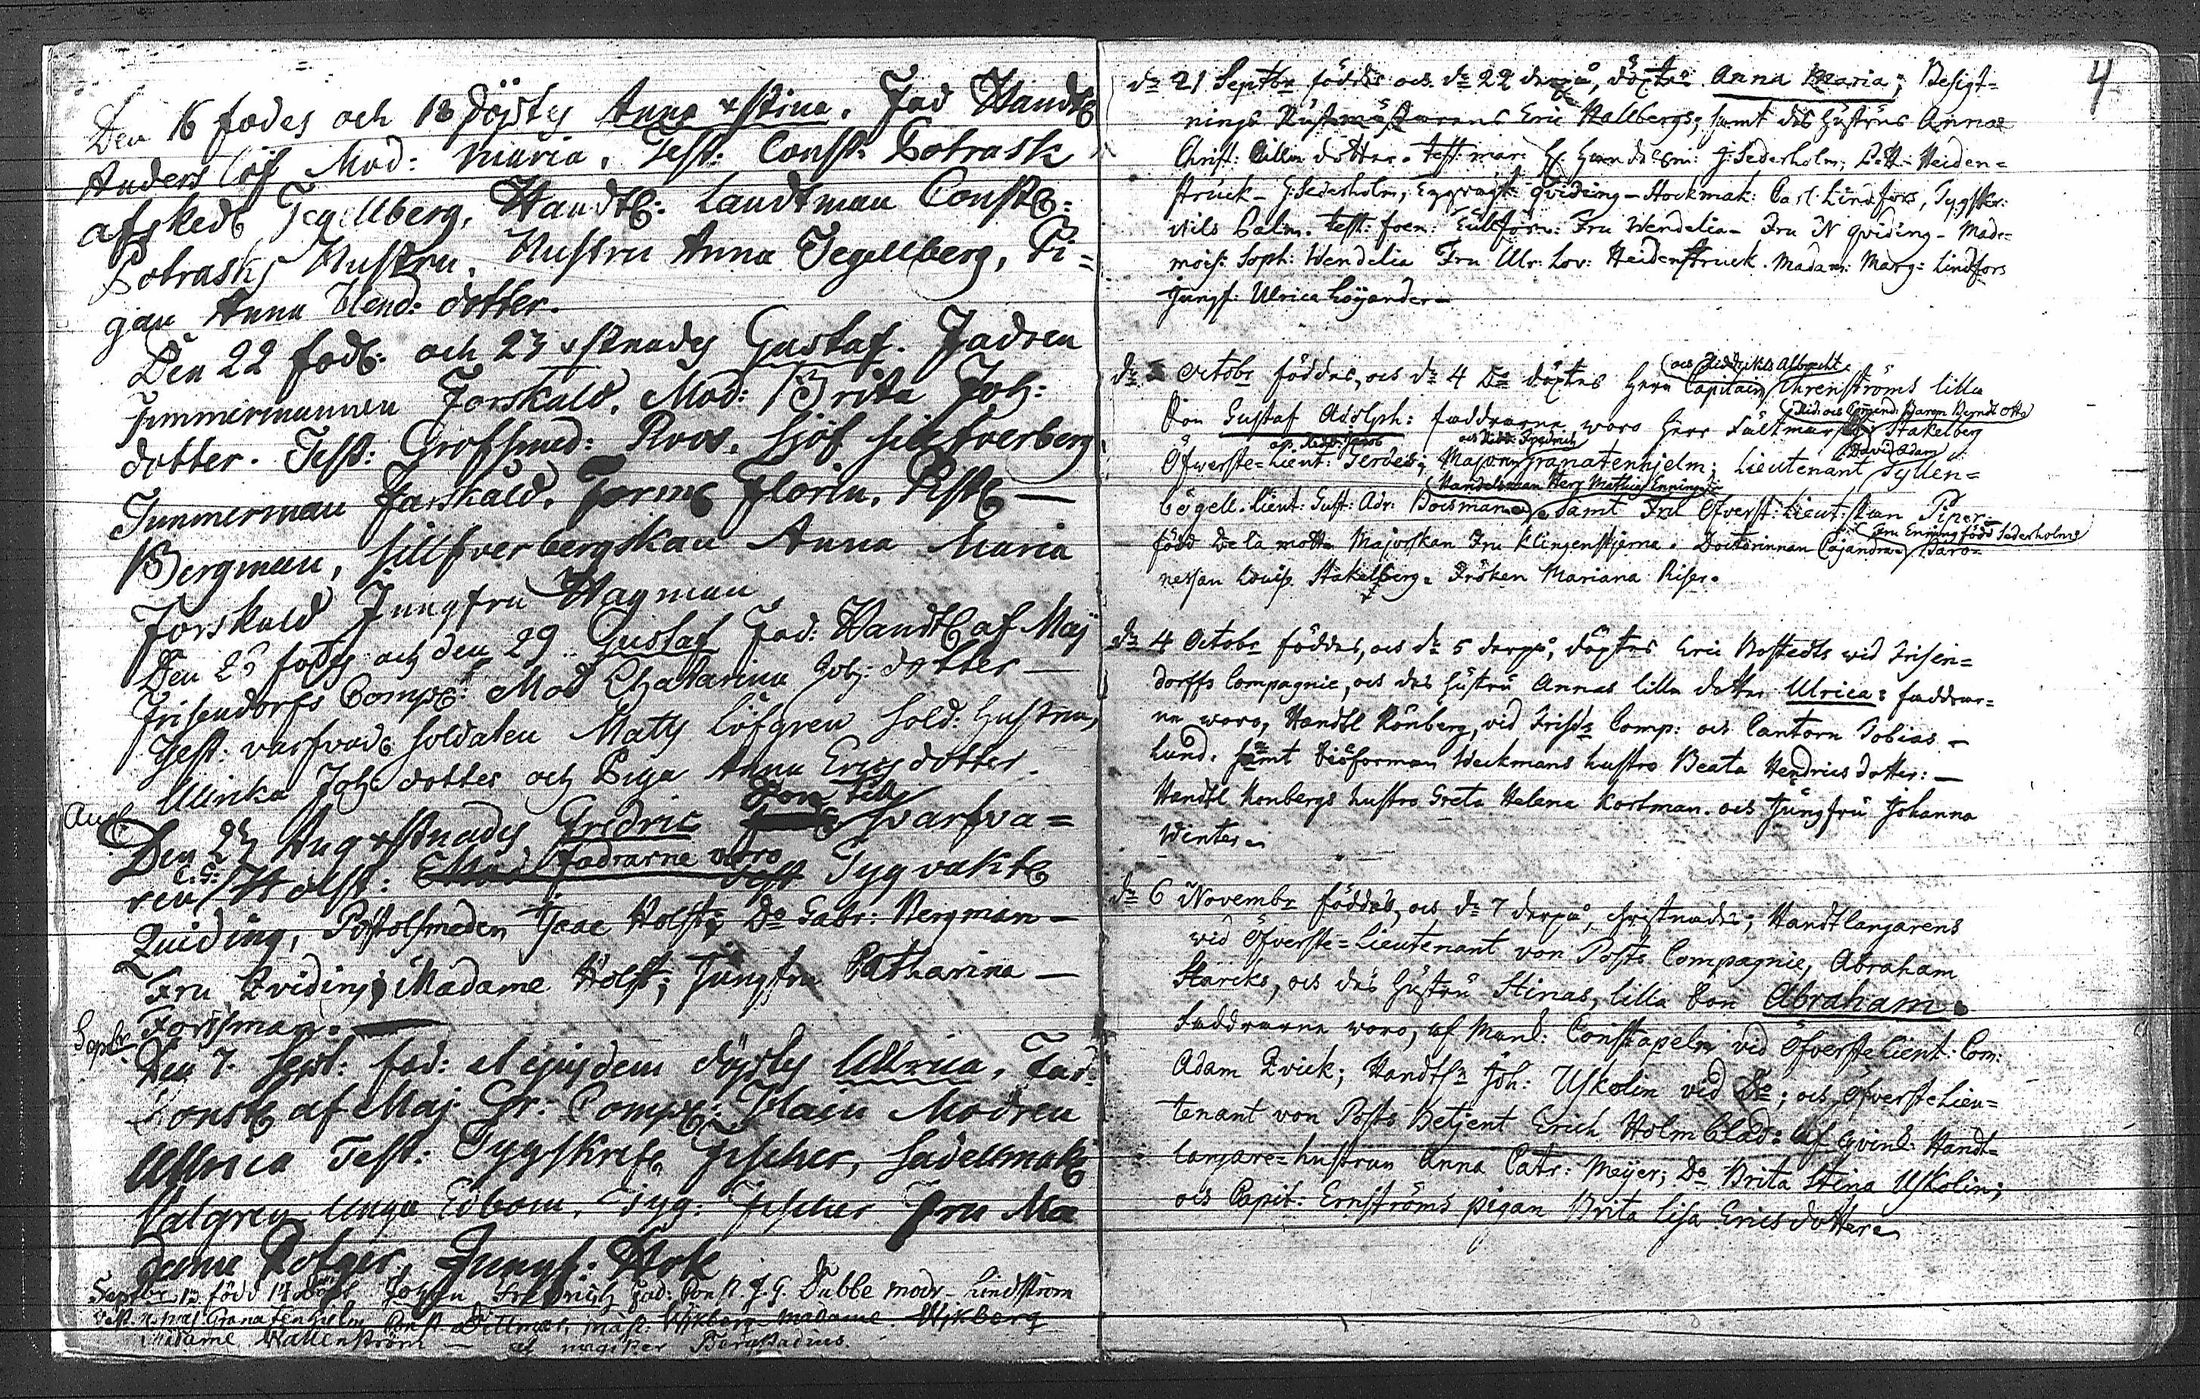 Den 16 fodes och 18 döptes Anna xstina. Fad Handtl
Anders Löf Mod: Maria. Test: Const: Botrask
afsked Tegellberg, Handtl: Landtman Constl:
Botrasks Hustru, Hustru Anna Tegellberg, Pi=
gan Anna Hend: dotter.
Den 22 fodl: och 23 xstnades Gustaf. Fadren
Timmermannen Forskåld. Mod: Brita Joh:
dotter. Test: Grofsmed: Roos. Löf Sillfverberg
Timmerman Forskåld. Florin.
Bergman, Sillfverbergskan Anna Maria
Forskåld Jungfru Hagman
Den 28 fodes och den 29 Gustaf Fad: Handtl af Maj
Frisendorfs Comp: Mod Chatarina Joh: dotter —
Test: varfvade Soldaten Mats Löfgren Sold: Hustrun,
Ullrika Joh dotter och Piga Anna Erics dotter.
Aug:
Son till
Den 27 Aug xstnades Fredric varfva=
ren Holst: fadrarne voro Tygvakt
Quiding, Pistolsmeden Isac Holst; Do Gabr: Bergman —
Fru Qviding; Madame Holst; Jungfru Catharina —
Forssman. —
Septbr
Den 7. Sept: fod: et ejusdem döptes Ullrica, Fad:
Const af Maj Gr: Comp: Modren
Ullrica Test: Tygskrifv Fischer, Sadellmak
Valgren Unga Edbom. Tyg: Fischer Fru Ma
dame Jungf: Hök
Septbr 13 född 14 döpt Johan Fredrich Fad: Const J. G. Dubbe modr. Lindström
Test. Major Granatenhielm Const Dittmar, Mäst: Wikberg Madame Wikberg
Madame Wallenström — af magister Bergstadius.
4
dn 21 Septbr föddes och dn 22 derpå, döptes Anna Maria; Besigt=
nings Rustmästarens Eric Hallbergs; samt dess Hustrus Annæ
Christ: dotter. Test: mar: H: Handelsm: J: Sederholm; Heiden=
struck - G: Sederholm, Tygvagt: Qviding — Stockmak: Carl Lindfors, Tygskr:
Nils Calm. Test: foem: Fru Wendelia — Fru N Qviding — Made=
mois: Soph: Wendelia Fru Ulr: Lov: Heidenstruck. Madam: Marg: Lindfors
Jungf: Ulrica Löyander —
och Nils Albrecht
dn 3 Octobr föddes, och dn 4 Do döptes Herr Capitain Ehrenströms lilla
Rid: och Comend: Baron Berndt Otto
Son Gustaf Adolph: faddrarne woro Herr Fältmarsk Stakelberg
och Ridd: Fredrich David Adam
Öfwerste=Lieut: Gerdes; Majorn Granatenhjelm; Lieutenant Gyllen=
Handelsman Herr Mathias Enning
bögell. Lieut: Gust: Adr: Boisman samt Fru Öfverst:Lieut:skan Piper
Fru Enning född Sederholm
född De la motte Majorskan Fru Klingenstjerna. Doctorinnan Cajander Baro=
nessan Louise Stakelberg. Fröken Mariana Riser.
dn 4 Octobr föddes, och dn 5 derpå, döptes Eric Bostedts wid Frisen=
dorffs Compagnie, och dess hustru Annas lilla dotter Ulrica: faddrar=
ne woro, Handtl Rönberg, vid Frisds Comp: och Cantorn Tobias —
Lund. samt Weckmans hustro Beata Hendrics dotter: —
Handtl Honbergs hustro Greta Helena Kortman. och Jungfru Johanna
Winter.
dn 6 Novembr föddes, och dn 7 derpå, christnades; Handtlangarens
wid Öfverste=Lieutenant von Posts Compagnie, Abraham
Starcks, och dess Hustru Stinas, lilla Son Abraham.
Faddrarne woro, af Mank: Constapeln vid Öfverstelieut: Com:
Adam Qvick; Handtlr Joh: Uskolin vid Do; och Öfverstelieu=
tenant von Posts Betjent Erich Holmblad: Af Qvink: Handt=
langare=hustrun Anna Catr: Meyer; Do Brita Stina Uskolin;
och Capit: Ernströms pigan Brita Lisa Ericsdotter.